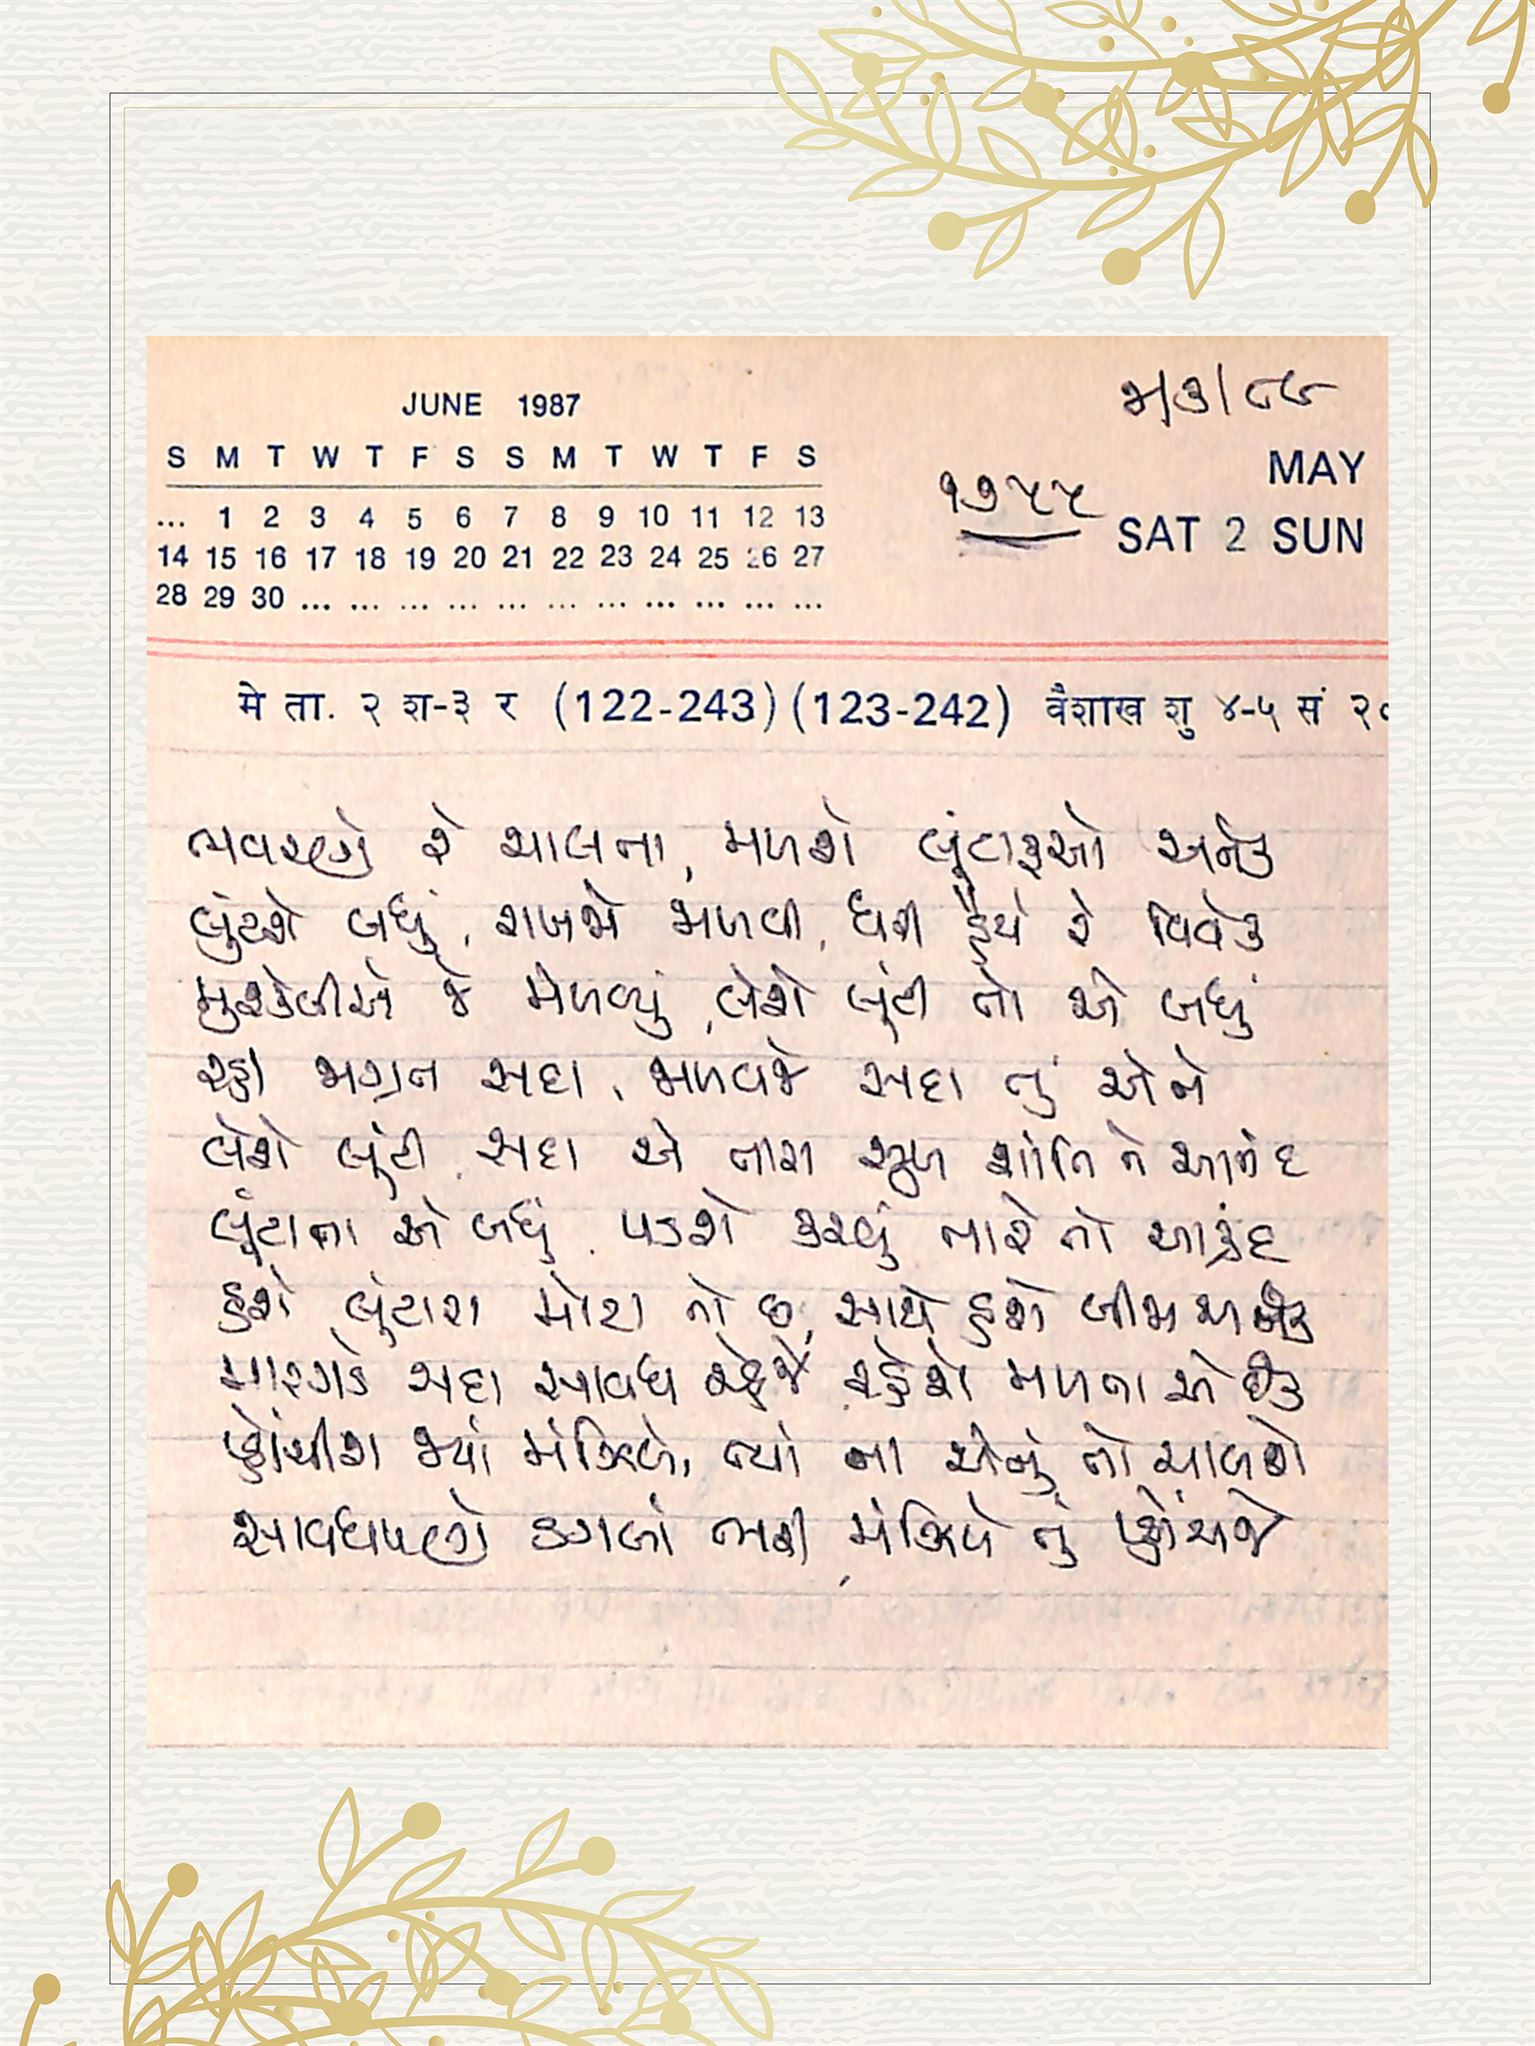 JUNE 1987
S M T W T F S S M T W T F S
... 1 2 3 4 5 6 7 8 9 10 11 12 13
14 15 16 17 18 19 20 21 22 23 24 25 26 27
28 29 30 ... ... ... ... ... ... ... ... ... ... ...
૧૭૫૫
MAY
SAT 2 SUN
मे ता. २ श-३ र (122-243) (123-242) वैशाख शु ४-५ सं २०
ભવરણે રે ચાલતા, મળશે લૂંટારુઓ અનેક
લુંટશે બધું, રાખજે જાળવી, ધરી હૈયે રે વિવેક
મુશ્કેલીએ જે મેળવ્યું, લેશે લૂંટી તો એ બધું
રહી જાગ્રત સદા, જાળવજે સદા તું એને
લેશે લૂંટી સદા એ તારા સુખ શાંતિ ને આનંદ
લૂંટાતા એ બધું, પડશે કરવું તારે તો આક્રંદ
હશે લુંટારા મોટા તો છ, સાથે હશે બીજા અનેક
મારગડે સદા સાવધ રહેજે, રહેશે મળતા એ છેક
પ્હોંચીશ જ્યાં મંઝિલે, ત્યાં ના એનું તો ચાલશે
સાવધપણે ડગલાં ભરી, મંઝિલે તું પ્હોંચજે